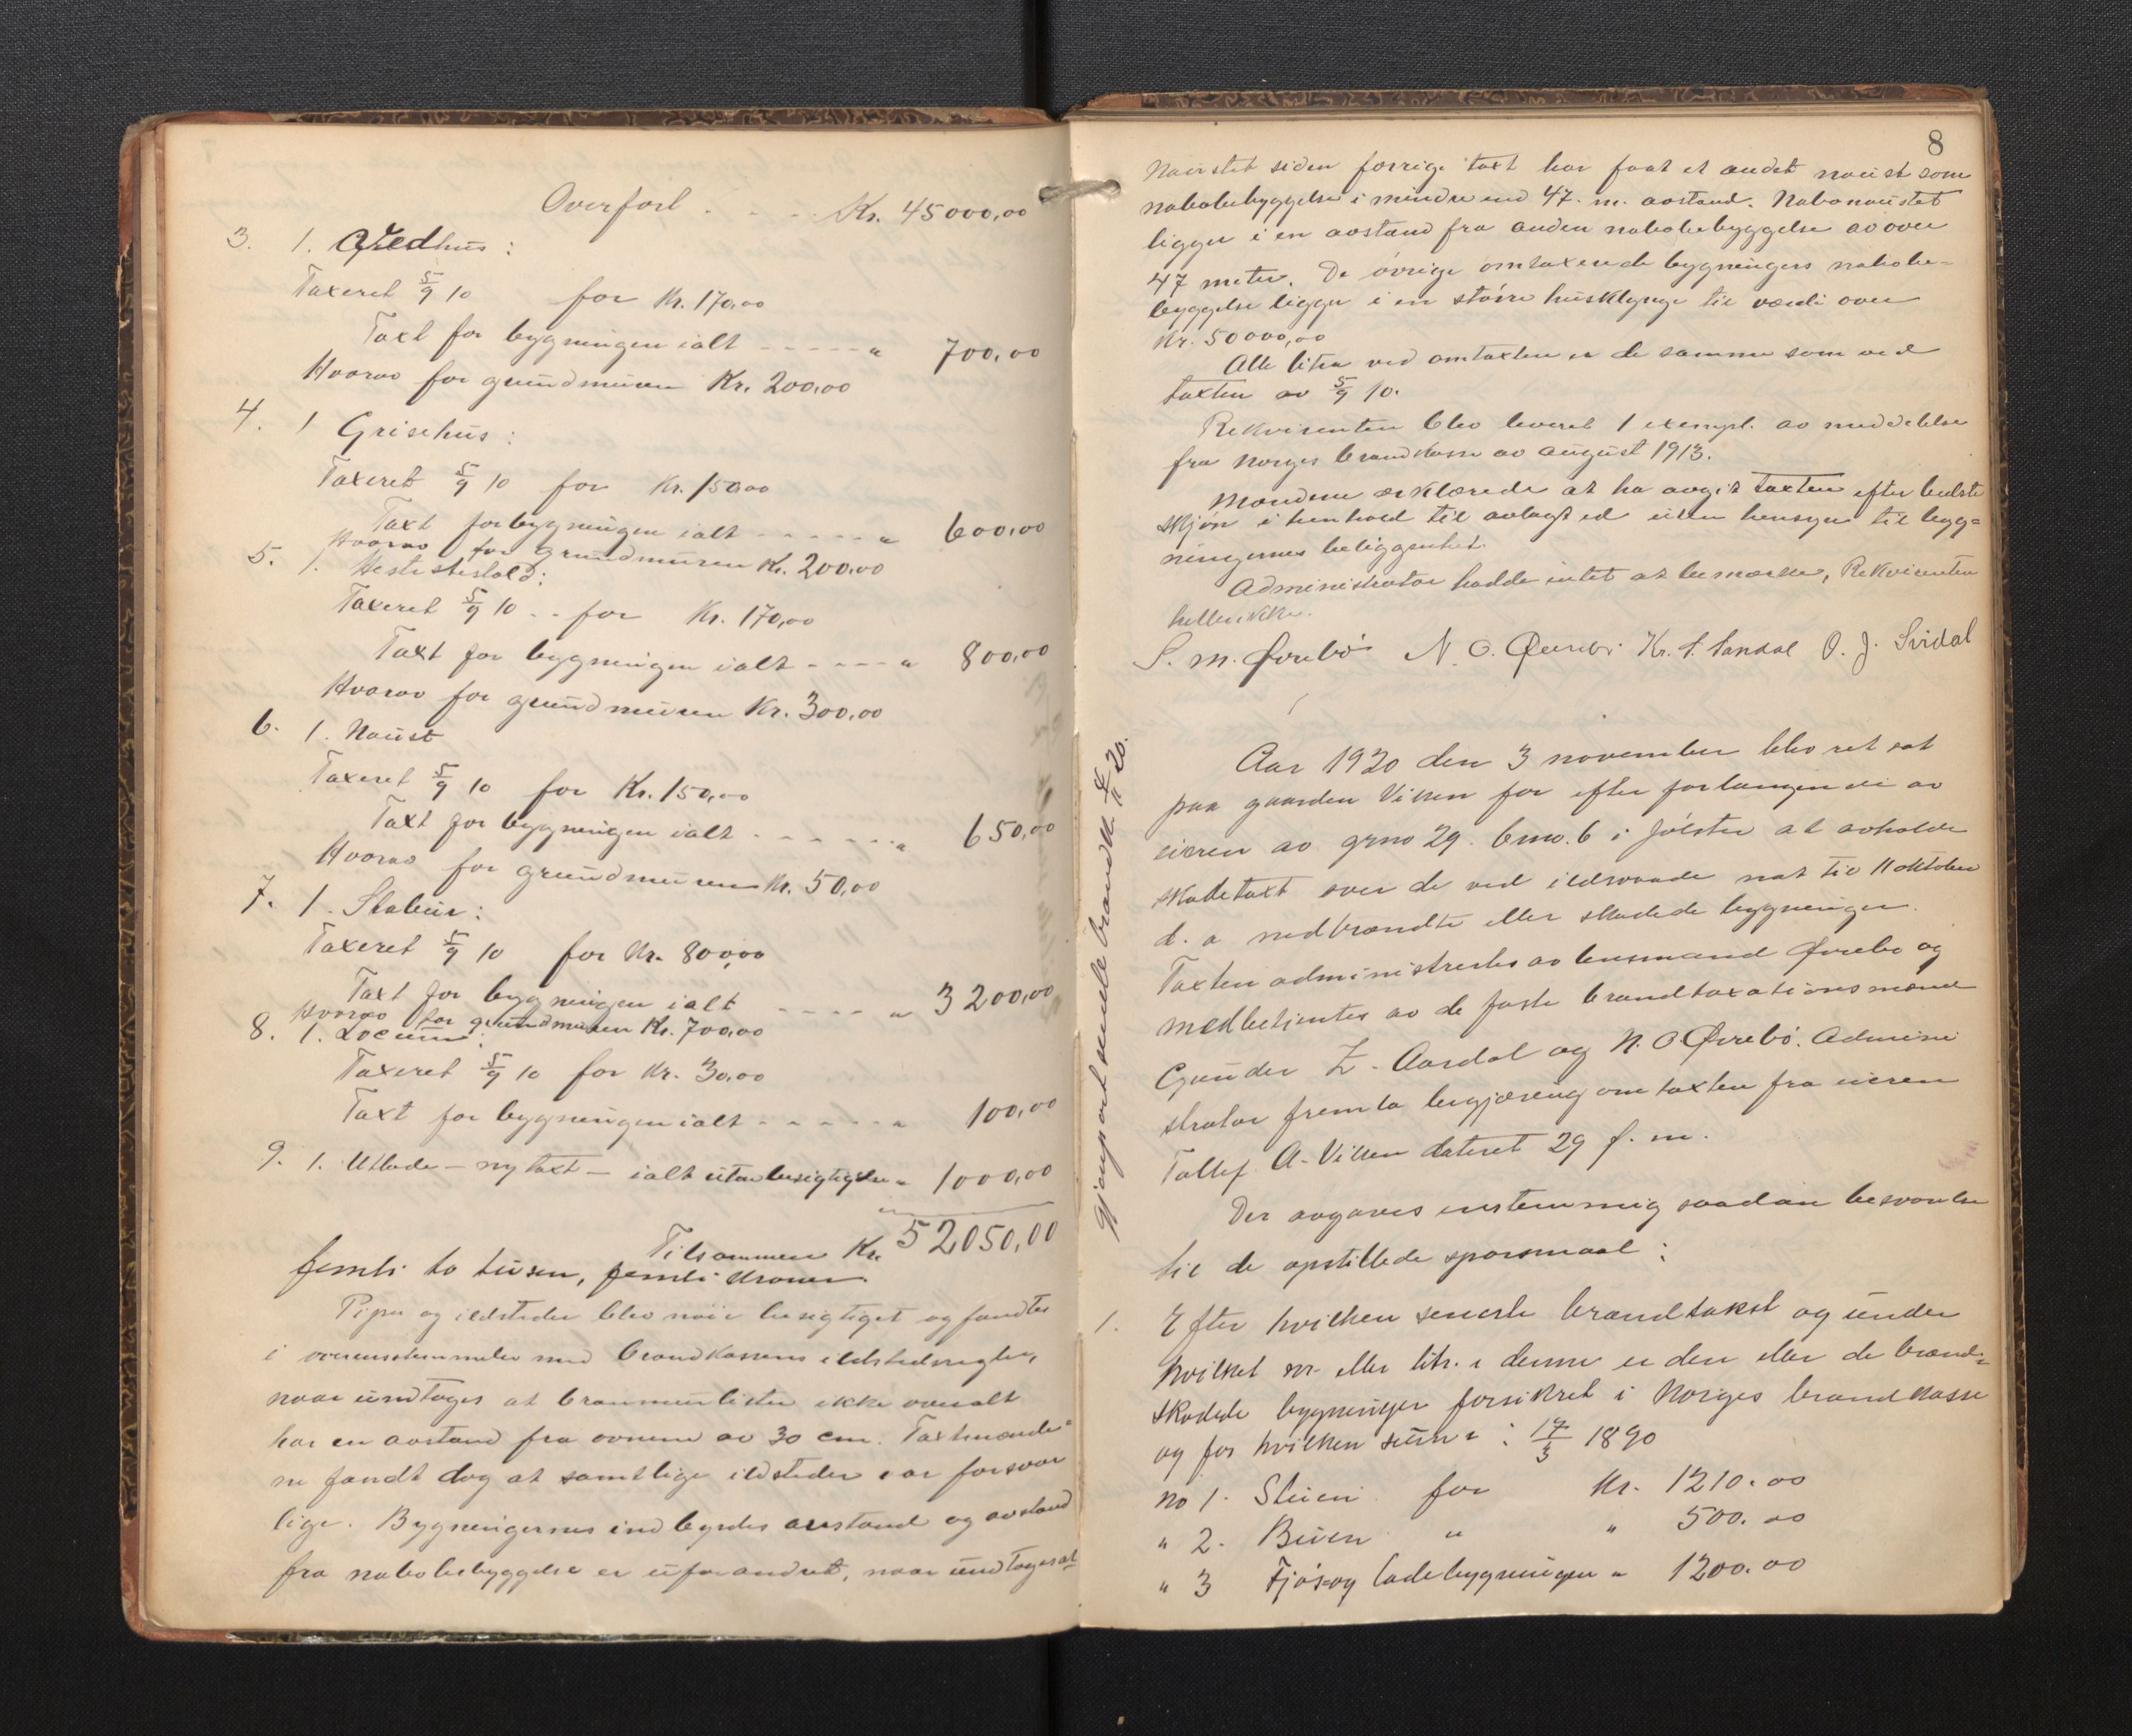 Overført . . . . Kr. 45000,00
3. 1. Vedhus:
Taxeret 5/9 10 for Kr. 170,00
Taxt for bygningen ialt - - - - - " 700,00
Hvorav for grundmuren Kr. 200,00
4. 1 Grisehus:
Taxeret 5/9 10 for Kr. 150,00
Taxt for bygningen ialt - - - - - " 600,00
Hvorav for grundmuren Kr. 200,00
5. 1. Hestestald:
Taxeret 5/9 10 - - for Kr. 170,00
Taxt for bygningen ialt - - - - " 800,00
Hvorav for grundmuren Kr. 300,00
6. 1. Naust
Taxeret 5/9 10 for Kr. 150,00
Taxt for bygningen ialt - - - - - " 650,00
Hvorav for grundmuren Kr. 50,00
7. 1. Stabur:
Taxeret 5/9 10 for Kr. 800,00
Taxt for bygningen ialt - - - - " 3200,00
Hvorav for grundmuren Kr. 700,00
8. 1. Locum:
Taxeret 5/9 10 for Kr. 30,00
Taxt for bygningen ialt - - - - - " 100,00
9. 1. Utlade - ny taxt - ialt uten besigtigelse " 1000,00
Tilsammen Kr. 52050,00
femti to tusen, femti kroner.
Piper og ildsteder blev nøie besigtiget og fandtes
i overensstemmelse med brandkassens ildstedsregler,
naar undtages at brammurlister ikke overalt
har en avstand fra ovnene av 30 cm. Taxtmænde-
ne fandt dog at samtlige ildsteder var forsvar
lige. Bygningernes indbyrdes avstand og avstand
fra nabobebyggelse er uforandret, naar undtages at
8
Naustet siden forrige taxt har faat et andet naust som
nabobebyggelse i mindre end 47. m. avstand. Nabonaustet
ligger i en avstand fra anden nabobebyggelse av over
47 meter. De øvrige omtaxerede bygningers nabobe-
byggelse ligger i en større husklynge til værdi over
Kr. 50000,00
Alle litra ved omtaxten er de samme som ved
taxten av 5/9 10.
Rekvirenten blev leveret 1 exempl. av meddelelse
fra Norges brandkasse av august 1913.
Mændene erklærede at ha avgit taxten efter bedste
skjøn i henhold til avlagt ed uten hensyn til byg-
ningernes beliggenhet.
Administrator hadde intet at bemærke, Rekvirenten
heller ikke.
S. M. Ørrebø N. O. Ørrebø. Kr. S. Sandal O. J. Svidal
Gjenpart sendt brandk. 4/11 20.
Aar 1920 den 3 november blev ret sat
paa gaarden Viken for efter forlangende av
eieren av grno 29. bno. 6 i Jølster at avholde
skadetaxt over de ved ildsvaade nat til 11 oktober
d. a nedbrændte eller skadede bygninger.
Taxten administrertes av lensmand Ørrebø og
medbetjentes av de faste brandtaxationsmænd
Gunder Z. Aardal og N. O. Ørrebø. Admini
strator fremla begjæring om taxten fra eieren
Tollef A. Viken dateret 29 f. m.
Der avgaves enstemmig saadan besvarelse
til de opstillede spørsmaal:
1. Efter hvilken seneste brandtakst og under
hvilket nr eller litr. i denne er den eller de brand-
skadede bygninger forsikret i Norges brandkasse
og for hvilken sum: 17/3 1890
No 1. Stuen for Kr. 1210.00
" 2. Buen " " 500.00
" 3 Fjøs og ladebygningen " 1200.00